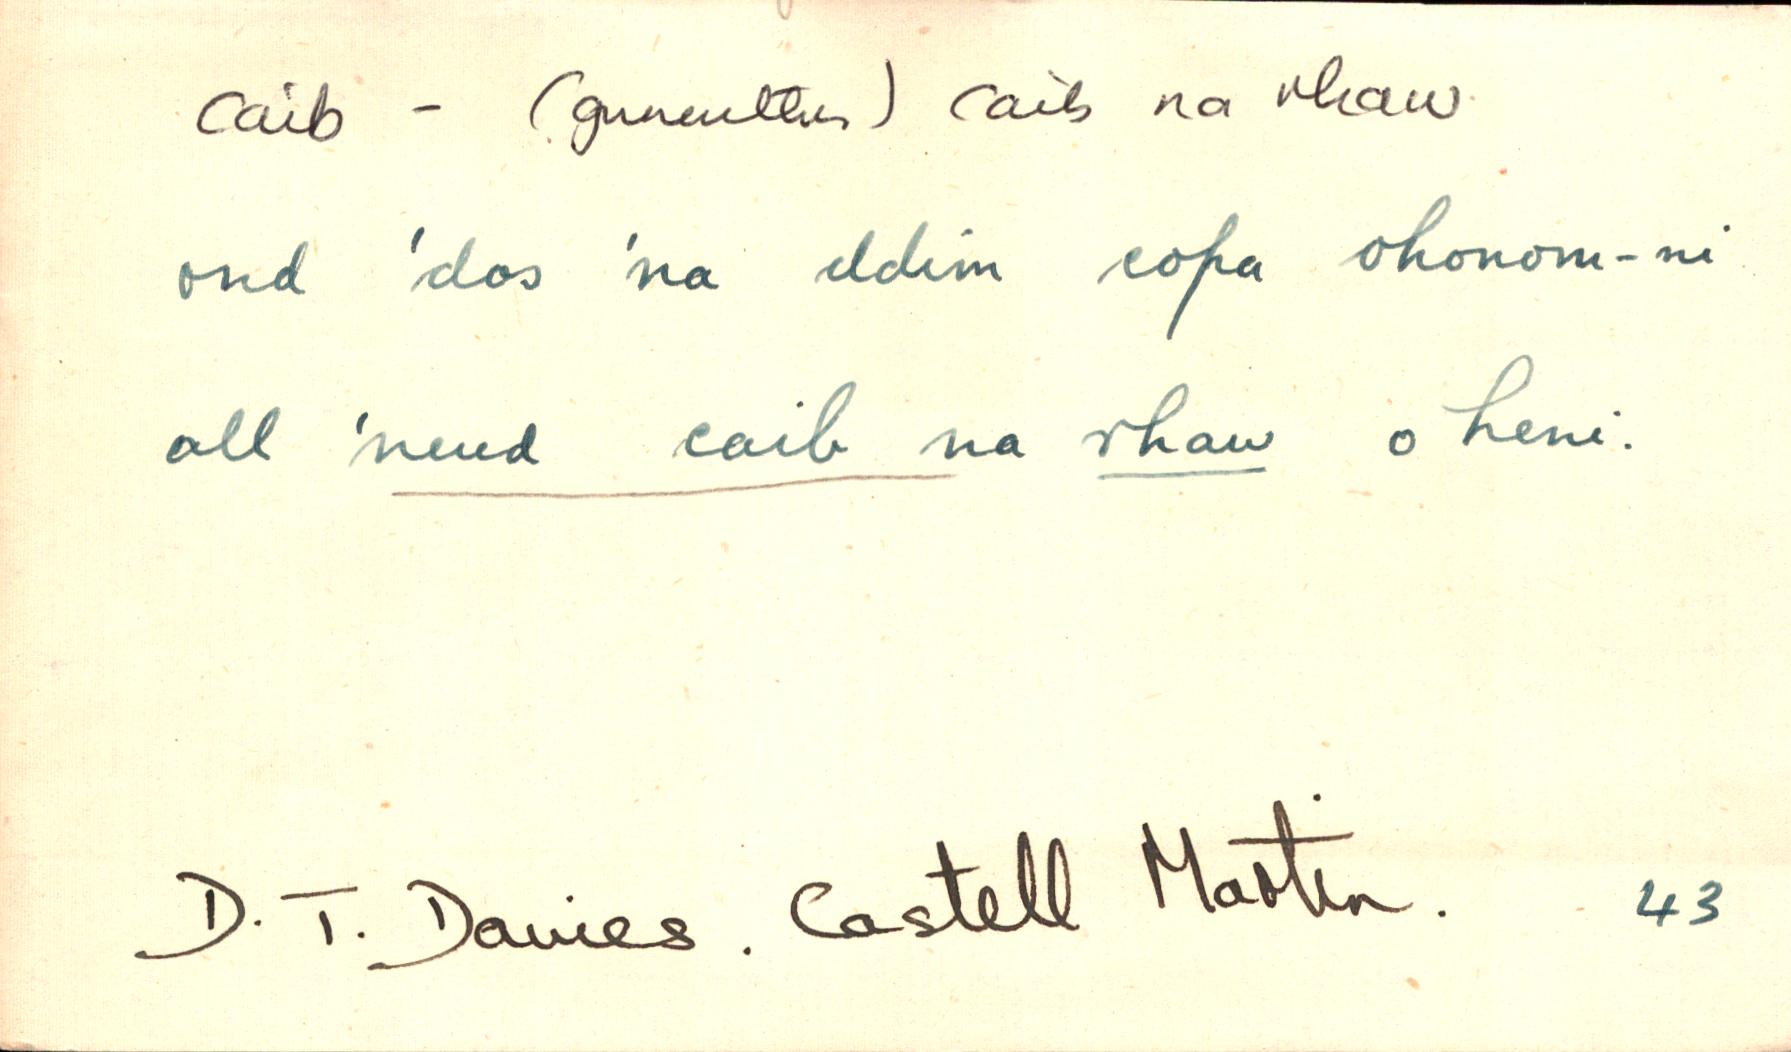 caib - (gwneuthur) caib na rhaw
ond 'dos 'na ddim copa ohonom-ni
all 'neud caib na rhaw o heni.
D. T. Davies. Castell Martin. 43